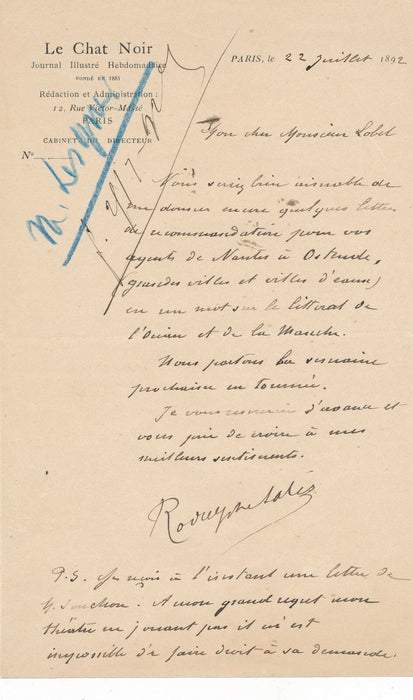 Le Chat Noir
Journal Illustré Hebdomadaire
FONDÉ EN 1881
Rédaction et Administration :
12, Rue Victor-Massé
PARIS
CABINET DU DIRECTEUR
No
PARIS, le 22 juillet 1892
Mon cher Monsieur Lobel
Vous seriez bien aimable de
me donner encore quelques lettres
de recommandation pour vos
agents de Nantes à Ostende,
(grandes villes et villes d'eaux)
en un mot sur le littoral de
l'Océan et de la Manche.
Nous partons la semaine
prochaine en tournée.
Je vous remercie d'avance et
vous prie de croire à mes
meilleurs sentiments.
Rodolphe Salis
P.S. Je reçois à l'instant une lettre de
M. Souchon. A mon grand regret mon
théâtre ne jouant pas il m'est
impossible de faire droit à sa demande.